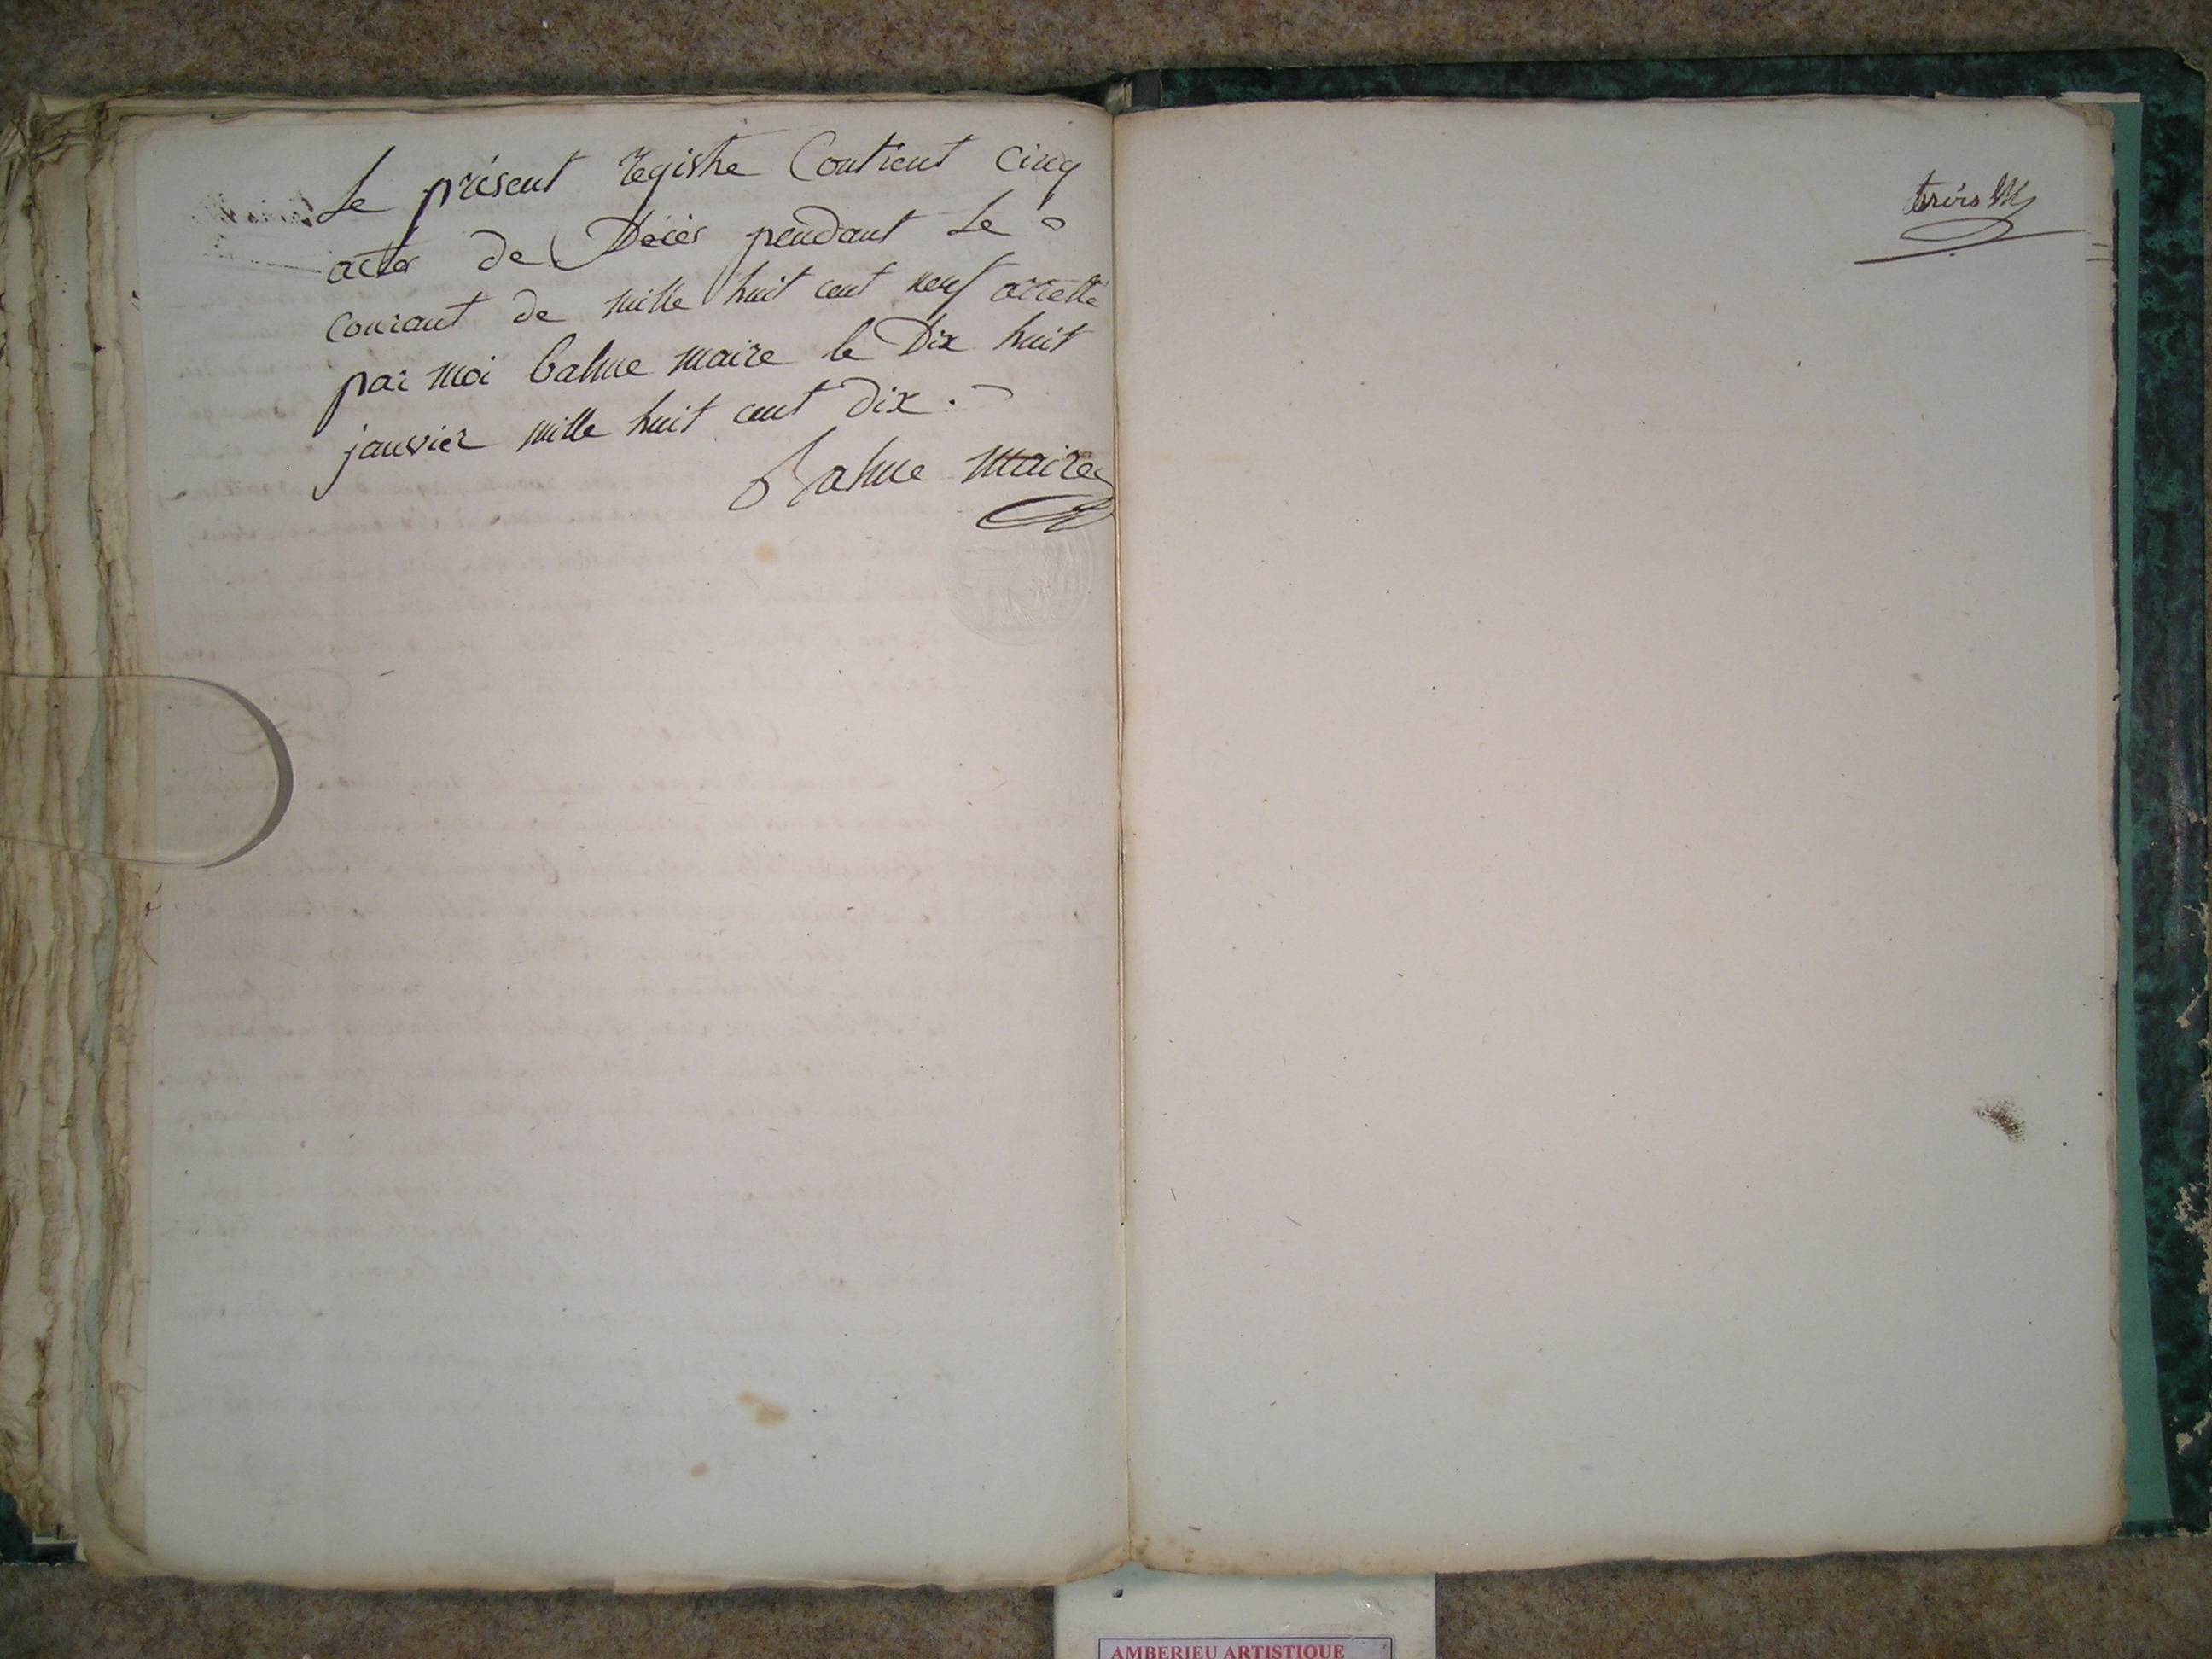 Le présent registre Contient cinq
actes de Décès pendant Le
courant de mille huit cent neuf arretté
par moi balme maire le Dix huit
janvier mille huit cent dix.
Balme maire
trois
AMBERIEU ARTISTIQUE